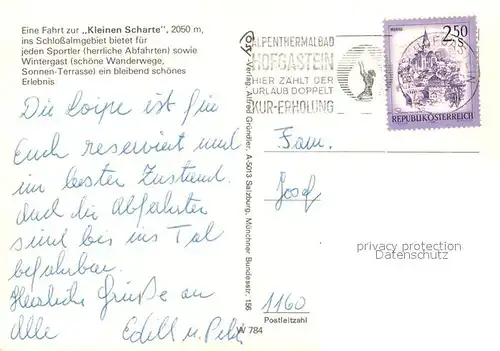 Eine Fahrt zur „Kleinen Scharte", 2050 m,
ins Schloßalmgebiet bietet für
jeden Sportler (herrliche Abfahrten) sowie
Wintergast (schöne Wanderwege,
Sonnen-Terrasse) ein bleibend schönes
Erlebnis
Die Loipe ist für
Euch reserviert und
im besten Zustand.
Auch die Abfahrten
sind bis ins Tal
befahrbar.
Herzliche Grüße an
Alle Edith u. Peter
Cosy-Verlag Alfred Gründler, A-5013 Salzburg, Münchner Bundesstr. 156
W 784
ALPENTHERMALBAD
HOFGASTEIN
HIER ZÄHLT DER
URLAUB DOPPELT
KUR-ERHOLUNG
2.50
REPUBLIK ÖSTERREICH
Fam.
Josef
privacy protection
Datenschutz
1160
Postleitzahl